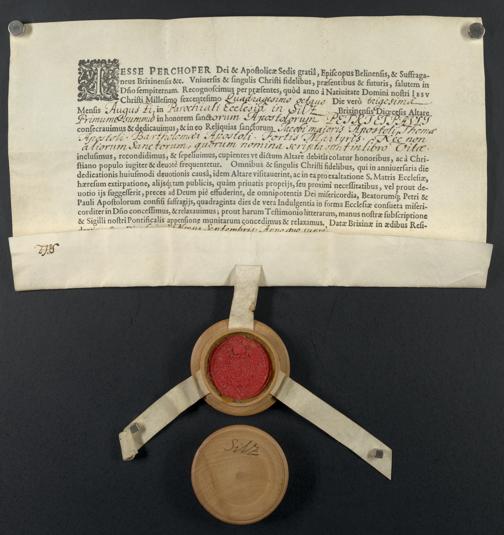 IESSE PERCHOFER Dei & Apostolicæ Sedis gratiâ, Episcopus Belinensis, & Suffraga-
neus Brixinensis &c. Vniuersis & singulis Christi fidelibus, præsentibus & futuris, salutem in
Dño sempiternam. Recognoscimus per præsentes, quòd anno à Natiuitate Domini nostri IESV
Christi Millesimo sexcentesimo Quadragesimo octauo Die verò trigesima
Mensis Augusti, in Parochiali Ecclesia in Siltz Brixinensis Diœcesis Altare
Primum Summum in honorem sanctorum Apostolorum PETRI et PAVLI
consecrauimus & dedicauimus, & in eo Reliquias sanctorum Jacobi maioris Apostoli, Thomæ
Apostoli, Bartholomæi Apostoli, Martyris, Nec non
aliorum Sanctorum, quorum nomina scripta sunt in libro Vitæ
inclusimus, recondidimus, & sepeliuimus, cupientes vt dictum Altare debitis colatur honoribus, ac à Chri-
stiano populo iugiter & deuotè frequentetur. Omnibus & singulis Christi fidelibus, qui in anniuersaria die
dedicationis huiusmodi deuotionis causâ, idem Altare visitauerint, ac in ea pro exaltatione S. Matris Ecclesiæ,
hæresum extirpatione, alijsq; tam publicis, quàm priuatis proprijs, seu proximi necessitatibus, vel prout de-
uotio ijs suggesserit, preces ad Deum piè effuderint, de omnipotentis Dei misericordia, Beatorumq; Petri &
Pauli Apostolorum confisi suffragijs, quadraginta dies de vera Indulgentia in forma Ecclesiæ consueta miseri-
corditer in Dño concessimus, & relaxauimus; prout harum Testimonio litterarum, manus nostræ subscriptione
& Sigilli nostri Pontificalis appensione munitarum concedimus & relaxamus. Datæ Brixinæ in ædibus Resi-
Septembris Anno quo supra
Siltz